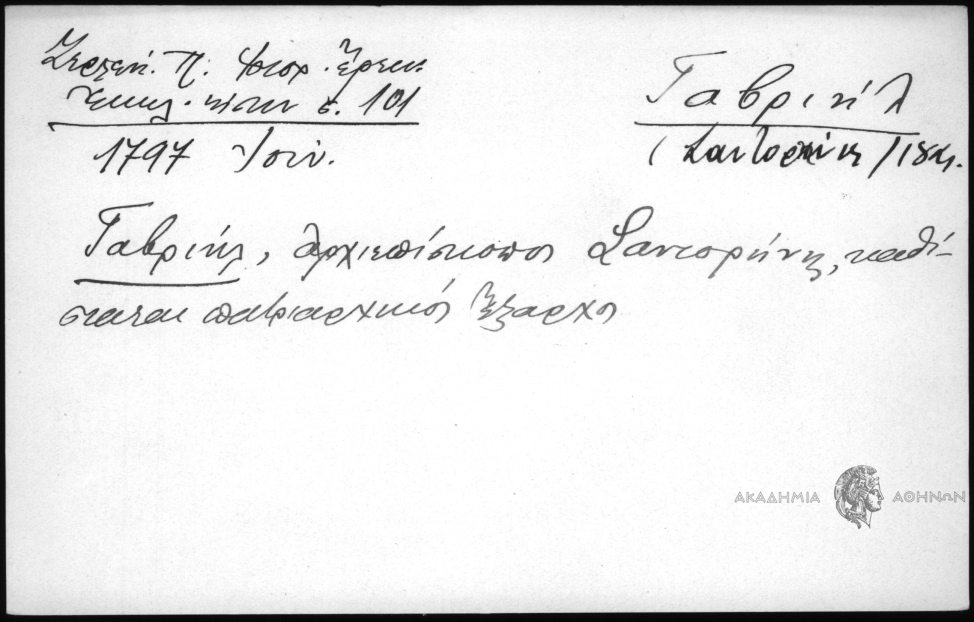 Ζερλέν. Π. Ἱστορ. Ἔρευν.
Ἐκκλ. νήσων σ. 101
1797 Ἰουν.
Γαβριήλ
(Σαντορίνης) 18αι.
Γαβριήλ, ἀρχιεπίσκοπος Σαντορήνης, καθί-
σταται πατριαρχικός Ἔξαρχος
ΑΚΑΔΗΜΙΑ ΑΘΗΝΩΝ